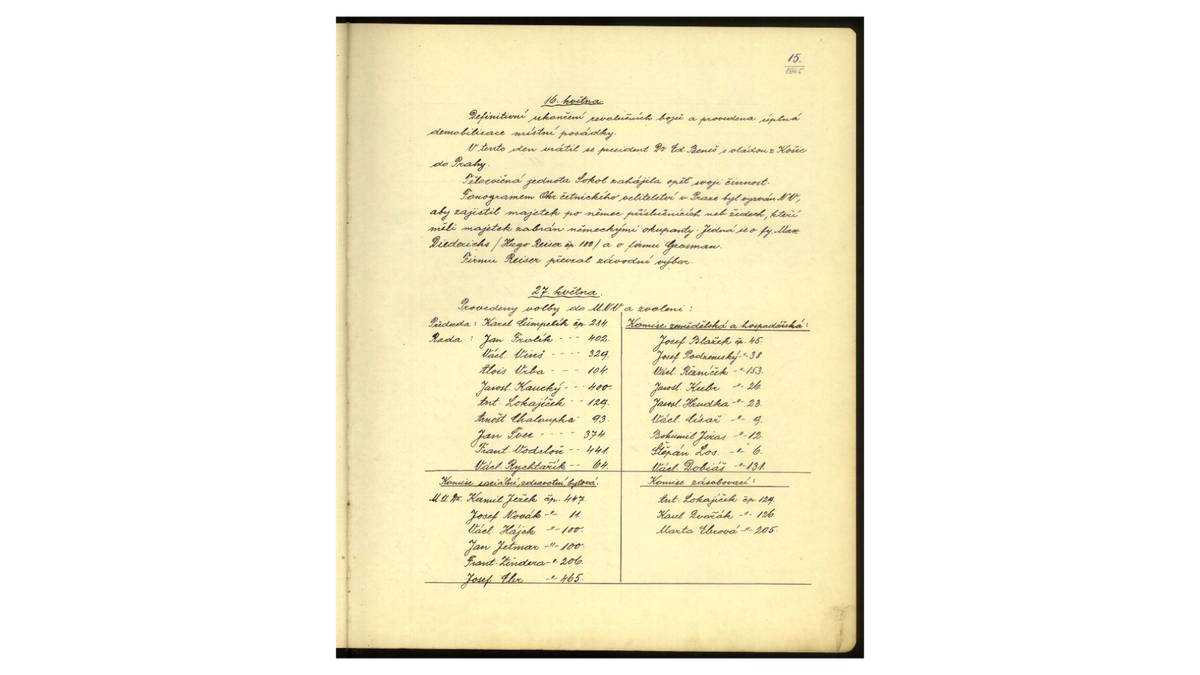 15.
1945
16. května.
Definitivní ukončení revolučních bojů a provedena úplná
demobilisace místní posádky.
V tento den vrátil se president Dr Ed Beneš s vládou z Košic
do Prahy.
Tělocvičná jednota Sokol zahájila opět svoji činnost.
Fonogramem Okr četnického velitelství v Praze byl vyzván NV,
aby zajistil majetek po němec příslušnících neb židech, kteří
měli majetek zabrán německými okupanty. Jedná se o fy. Max
Diederichs /Hugo Reiser čp 182/ a o firmu Grosman.
Firmu Reiser převzal závodní výbor.
27. května.
Provedeny volby do MNV a zvoleni:
Předseda: Karel Čimpelík čp 284.
Rada: Jan Frolík - - - 402.
Václ. Vinš - - - 329.
Alois Vrba - - - 104.
Jarosl. Kaucký - - 400.
Ant. Lokajíček - - 129.
Arnošt Chaloupka - 93.
Jan Švec - - - - 374.
Frant Vodsloň - - 441.
Václ. Rychtařík - - 64.
Komise zemědělská a hospodářská:
Josef Blažek čp 45.
Josef Podzemský -"- 38
Václ. -"- 153.
Jarosl. Kubr -"- 26.
Jarosl. Hrudka -"- 23.
Václ. Císař -"- 9.
Bohumil Jiras -"- 12.
Štěpán Los. -"- 6.
Václ. Dobiáš -"- 131.
Komise sociální, zdravotní, bytová.
M.U.Dr. Kamil Ježek čp. 447.
Josef Novák -"- 11.
Václ. Hájek -"- 100.
Jan Jetmar -"- 100.
Frant. Zindera -"- 206.
Josef Uhr -"- 465.
Komise zásobovací:
Ant. Lokajíček čp 129.
Karel Dvořák -"- 126.
Marta Ebrová -"- 205.